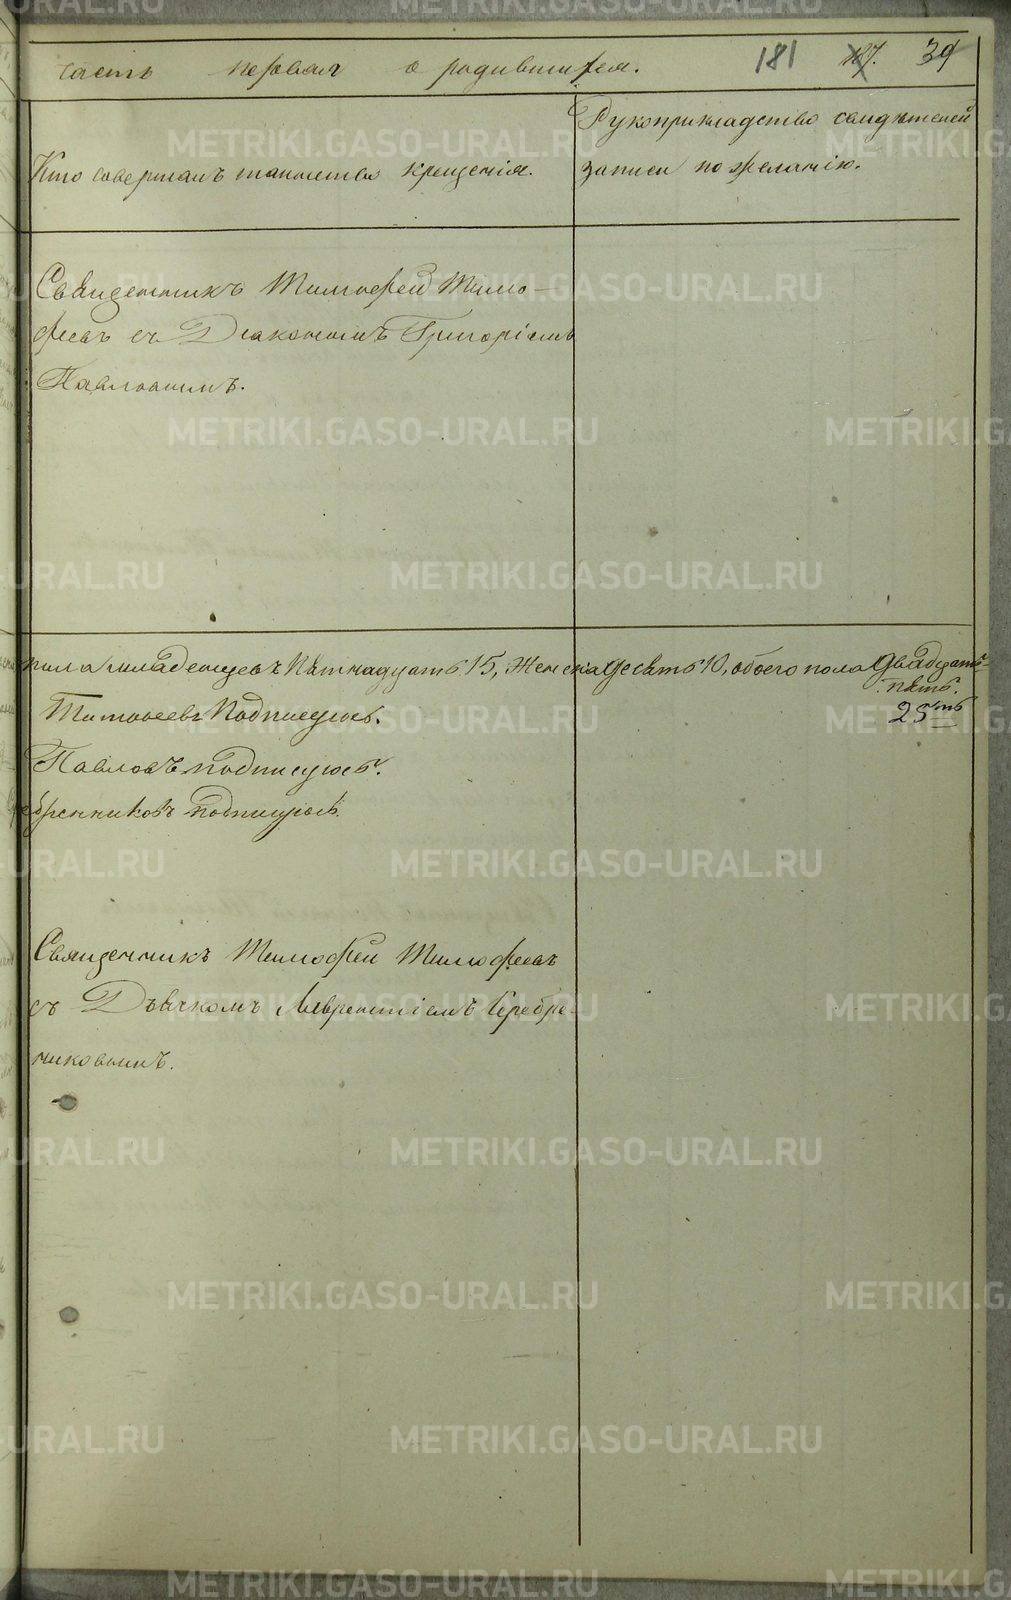 часть первая о родившихся. 181 187. 39
Кто совершалъ таинство крещенія.
Рукоприкладство свидѣтелей
записи по желанію.
Священникъ Тимофей Тимо-
феевъ съ Діакономъ Григоріемъ
Павловымъ.
пола младенцевъ пятнадцать 15, женска десять 10, обоего пола двадцать
пять.
25ть
Тимофеевъ подписуюсь.
Павловъ подписуюсь.
ебренниковъ подписуюсь.
Священникъ Тимофей Тимофеевъ
съ Дьячкомъ Лаврентіемъ Серебре-
никовымъ.
METRIKI.GASO-URAL.RU